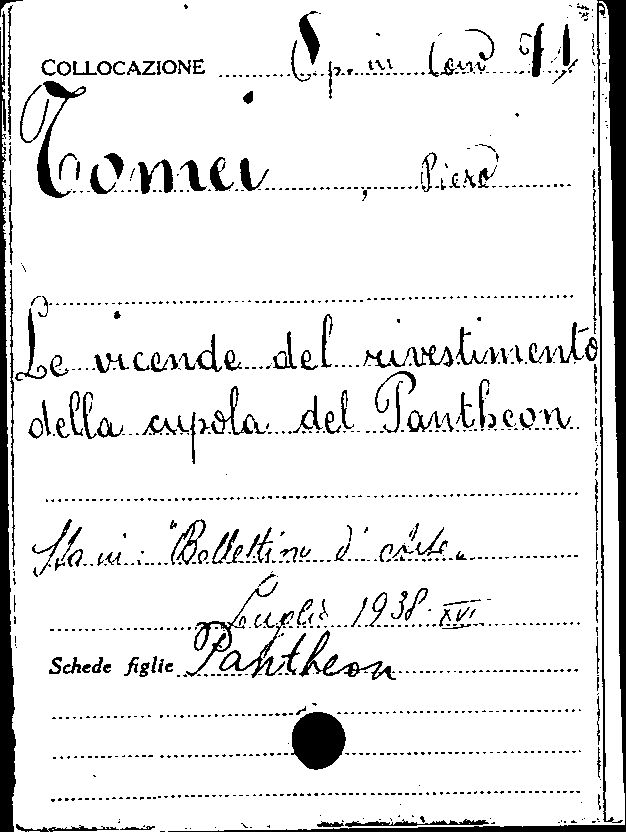 COLLOCAZIONE Op. in Com 71
Tomei, Piero
Le vicende del rivestimento
della cupola del Pantheon
Sta in: "Bollettino d'arte"
Luglio 1938-XVI
Schede figlie Pantheon